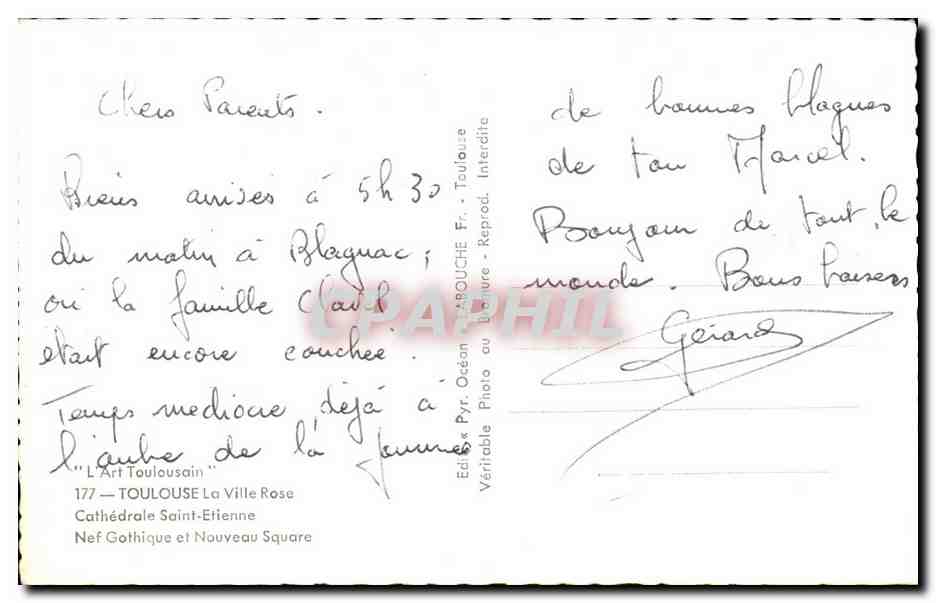 Chers Parents.
Biens arrivés à 5h30
du matin à Blagnac;
où la famille Clavel
était encore couchée.
Temps mediocre, déjà à
l'aube de la journee
de bonnes blagues
de ton Marcel.
Bonjour de tout le
monde. Bons baisers
Gérard
"L'Art Toulousain"
177 — TOULOUSE La Ville Rose
Cathédrale Saint-Etienne
Nef Gothique et Nouveau Square
Edit. « Pyr. Océan » LABOUCHE Fr. - Toulouse
Véritable Photo au Bromure - Reprod. Interdite
CPAPHIL